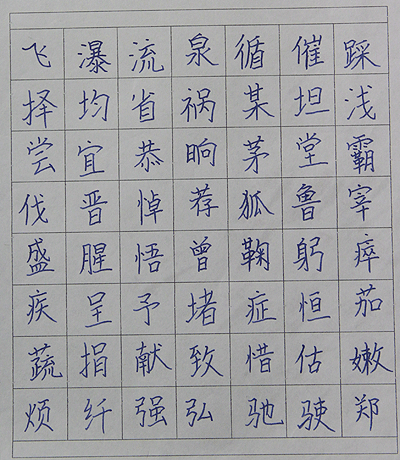 飞瀑流泉循催踩
择均省祸某坦浅
尝宜恭晌茅堂霸
伐晋悼荐狐鲁宰
盛腥悟曾鞠躬瘁
疾呈予堵症恒茄
蔬捐献致惜估嫩
烦纤强弘驰驶郑